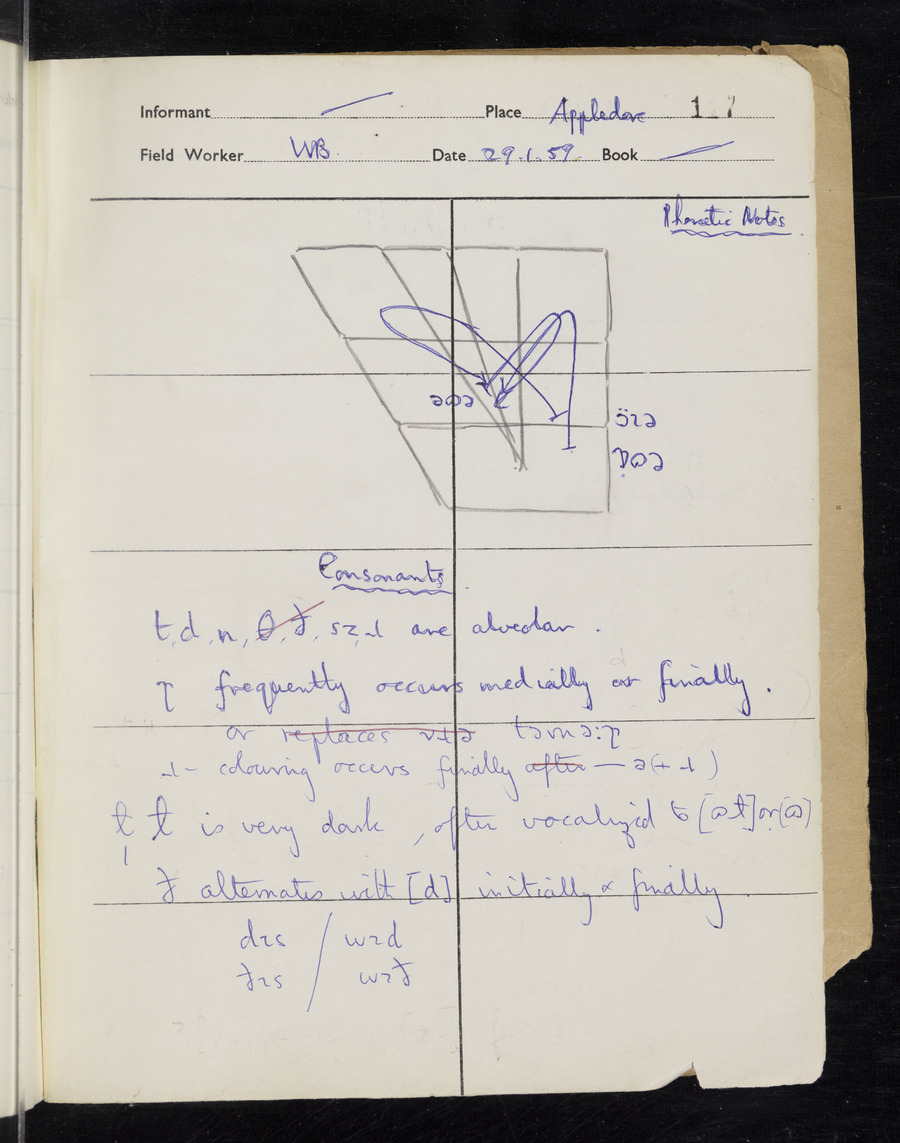 Informant Place Appledore 1 7
Field Worker WB. Date 29.1.59. Book
Phonetic Notes
əɷə
ɔ̈ɩə
ɒɷə
Consonants
t, d, n, θ, ð, s z, ɹ are alveolar.
ʔ frequently occurs medially or finally.
or replaces
ɹ- colouring occurs finally after — ə (+ ɹ)
ɫ ɫ is very dark, often vocalized to [ɷɫ] or [ɷ]
ð alternates with [d] initially & finally
dɩs / wɩd
ðɩs / wɩð